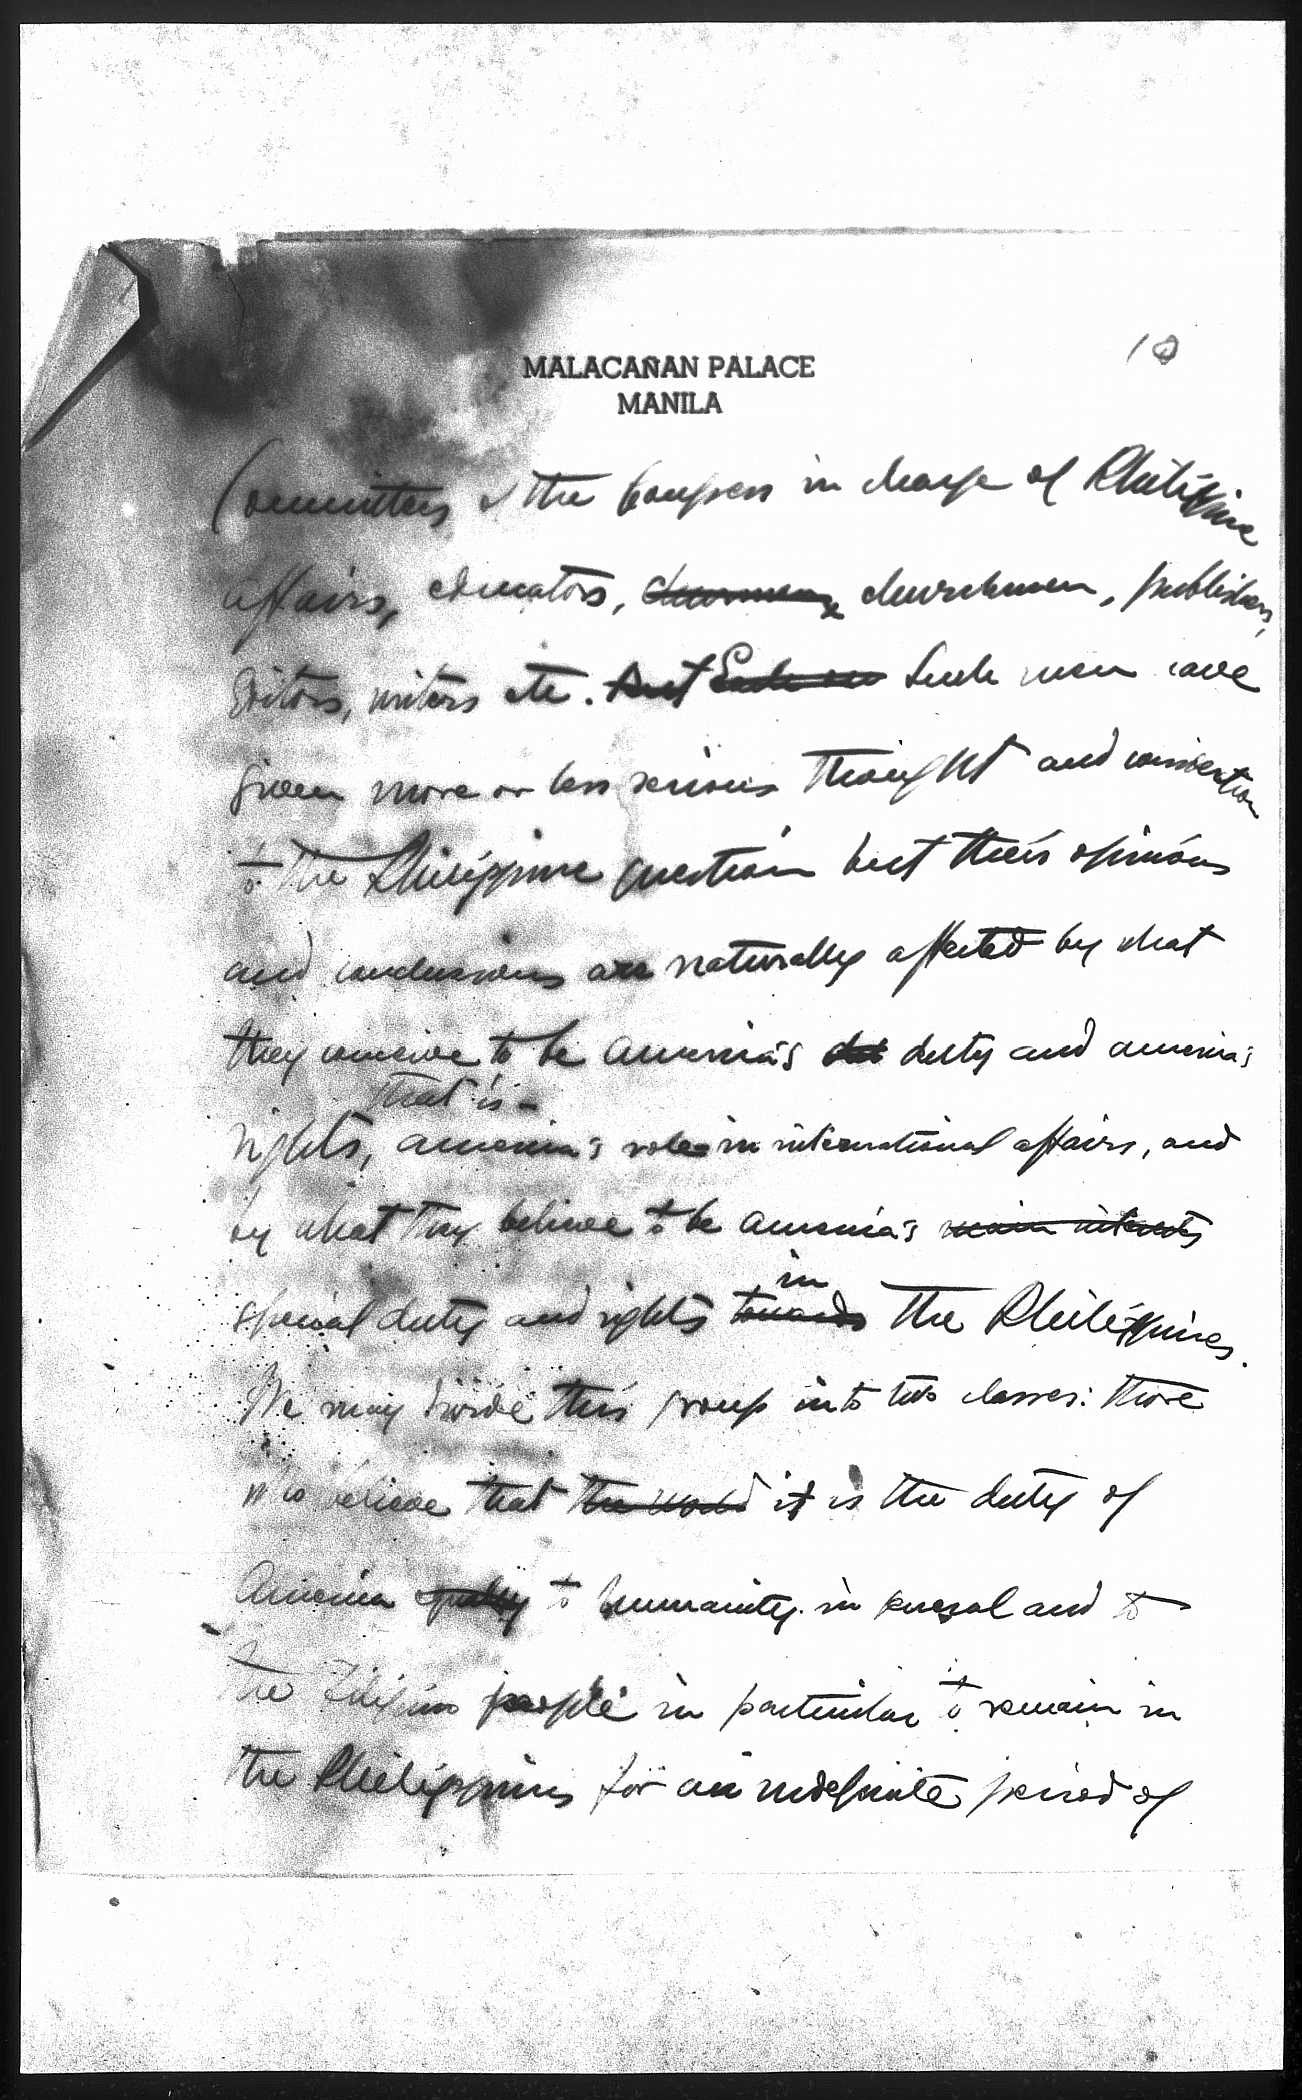 10
MALACAÑAN PALACE
MANILA
Committees of the Congress in charge of Philippine
affairs, educators, churchmen, publishers,
Editors, writers etc. But Such men Such men have
given more or less serious thought and consideration
to the Philippine question but their opinions
and conclusions are naturally affected by what
they conceive to be America's duty and America's
that is -
rights, America's role in international affairs, and
by what they believe to be America's main interests
in
special duty and rights towards the Philippines.
We may divide this group into two classes: those
who believe that the world it is the duty of
America to humanity in general and to
the Filipino people in particular to remain in
the Philippines for an indefinite period of